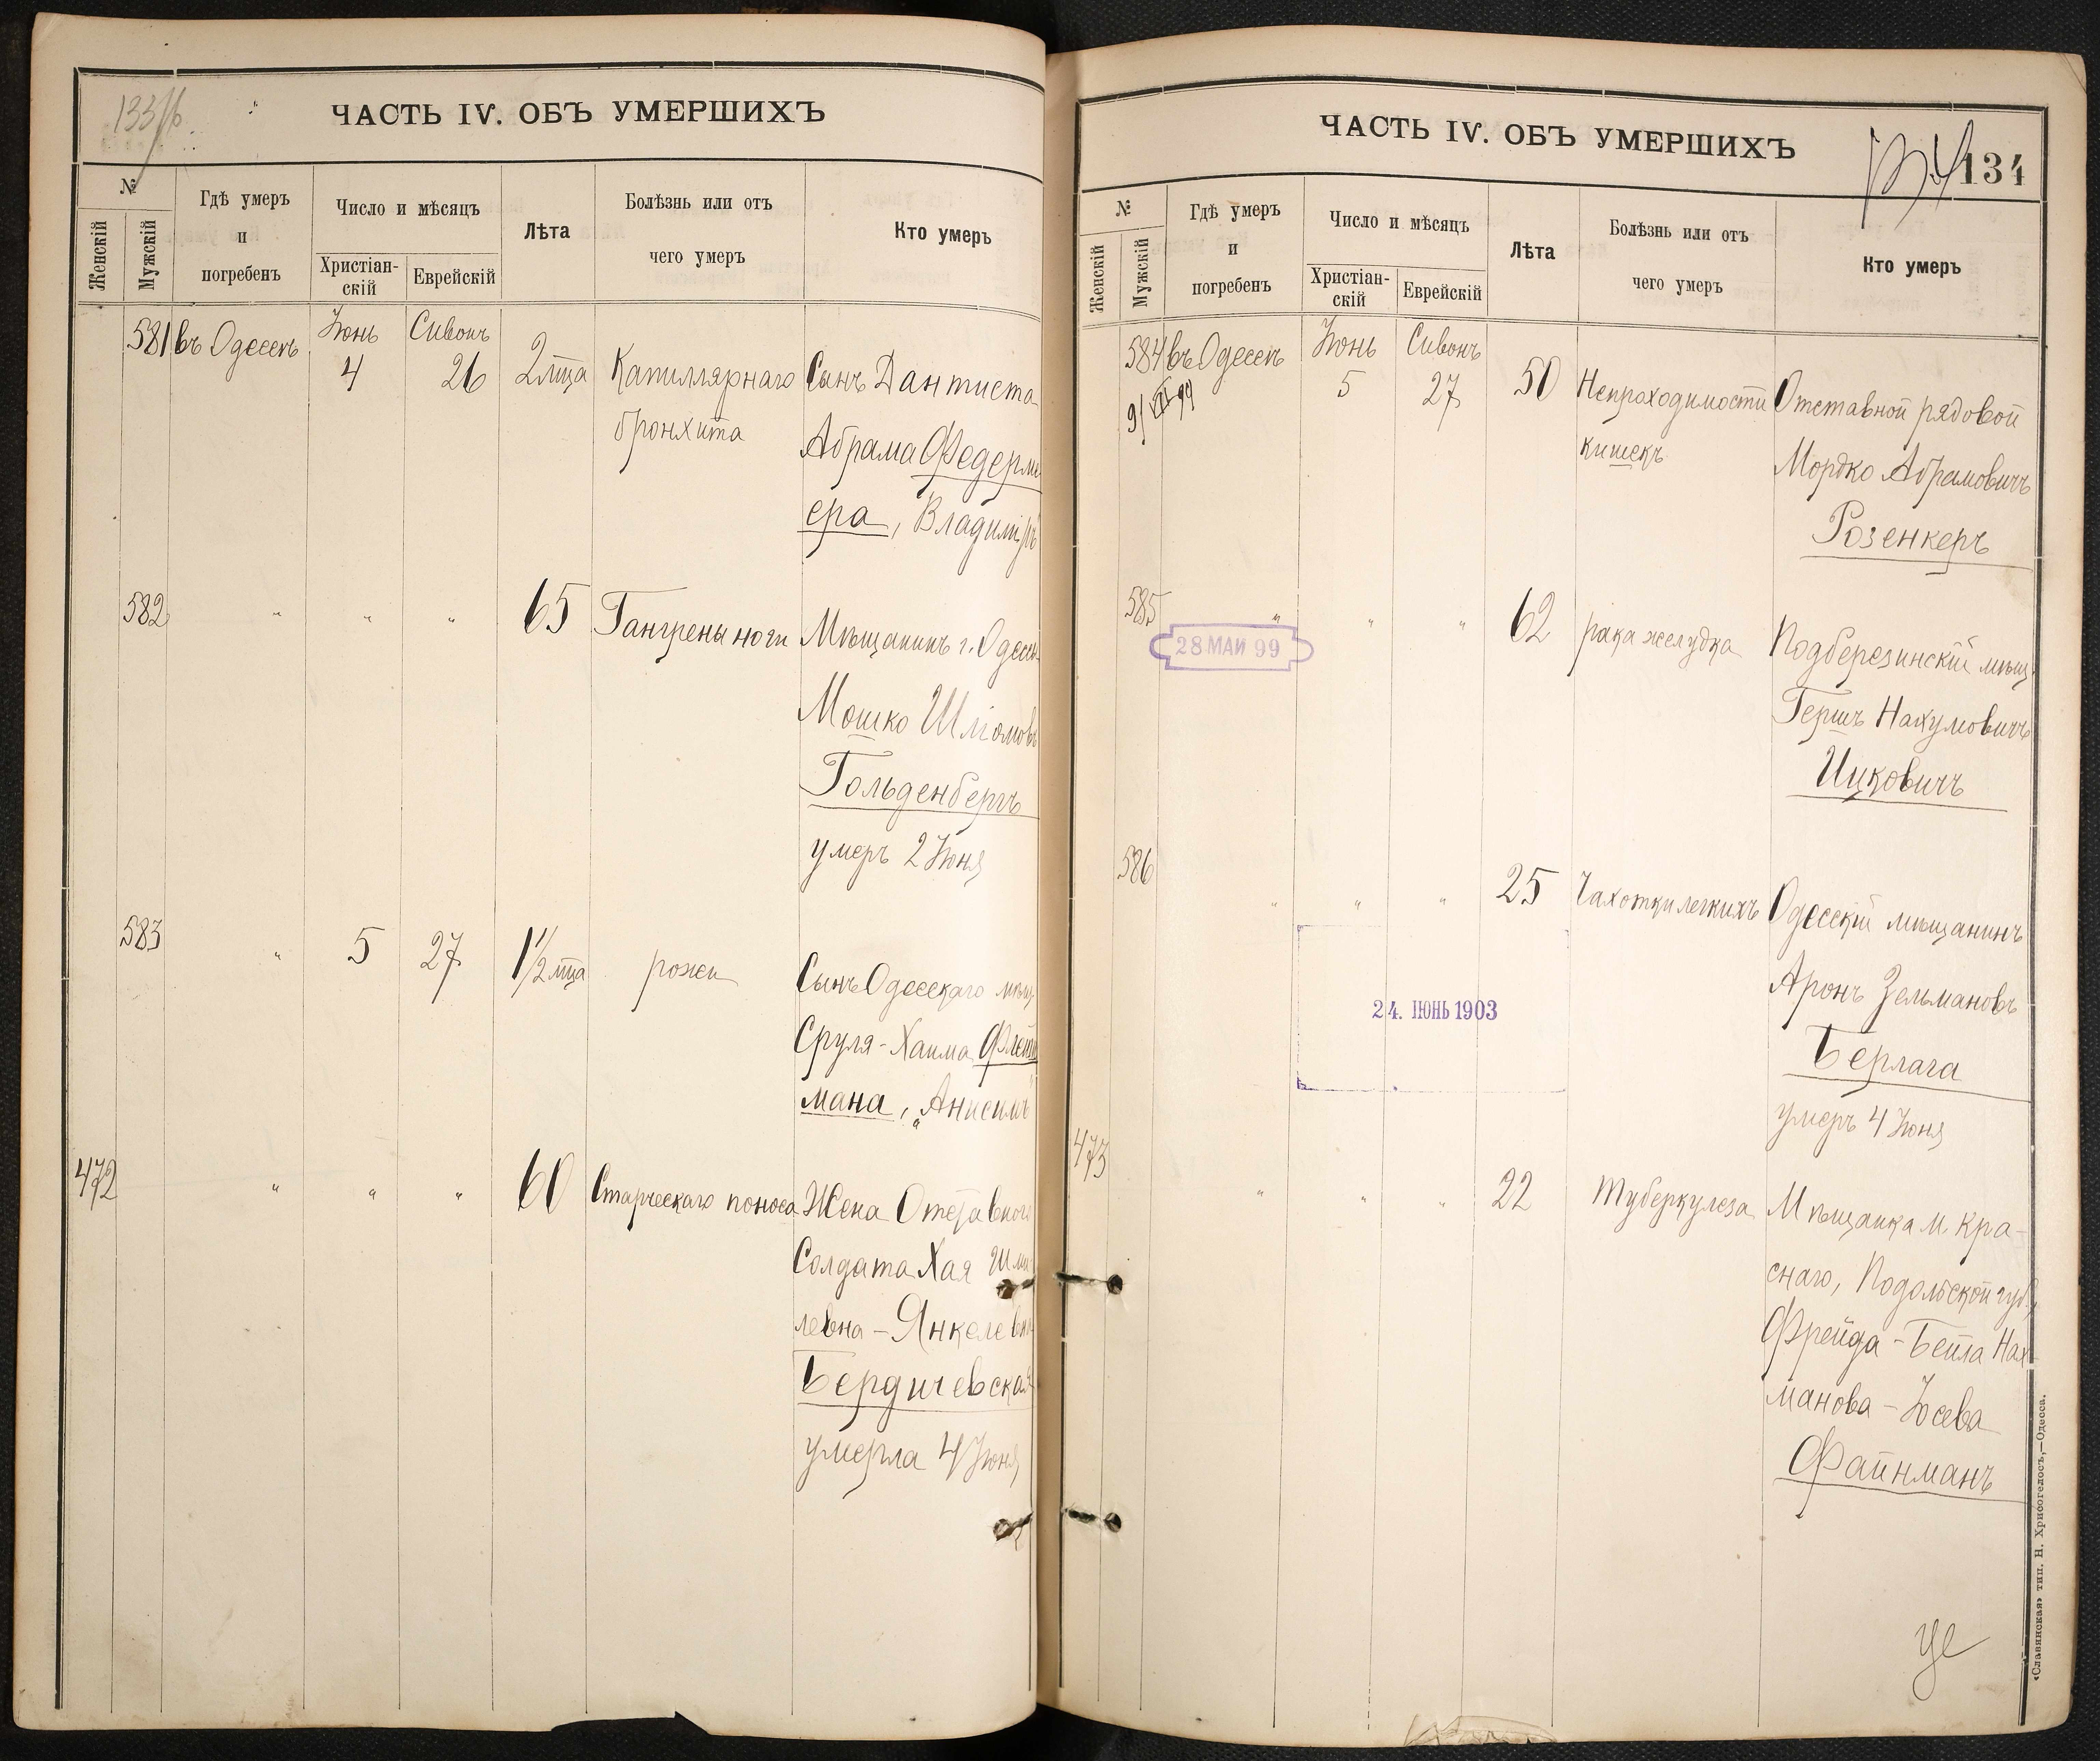 ЧАСТЬ IV. ОБЪ УМЕРШИХЪ
№
Женскій
Мужскій
Гдѣ умеръ
и
погребенъ
Число и мѣсяцъ
Христіан-
скій
Еврейскій
Лѣта
Болѣзнь или отъ
чего умеръ
Кто умеръ
581 въ Одессѣ Іюнь Сивонъ
4 26 2 мца Капиллярнаго Сынъ Дантиста
бронхита Абрама Федерме
ера, Владиміръ
582 " " " 65 Гангрены ноги Мѣщанинъ г. Одессы
Мошко Шліомовъ
Гольденбергъ
умеръ 2 Іюня
583 " 5 27 1 1/2 мца рожи Сынъ Одесскаго мѣщ.
Сруля-Хаима Флейш
мана, "Анисимъ"
472 " " " 60 Старческаго поноса Жена Отставного
Солдата Хая Шми
левна-Янкелевна
Бердичевская
умерла 4 Іюня
ЧАСТЬ IV. ОБЪ УМЕРШИХЪ
134
№
Женскій
Мужскій
Гдѣ умеръ
и
погребенъ
Число и мѣсяцъ
Христіан-
скій
Еврейскій
Лѣта
Болѣзнь или отъ
чего умеръ
Кто умеръ
584 въ Одессѣ Іюнь Сивонъ
5 27 50 Непроходимости Отставной рядовой
кишекъ Мордко Абрамовичъ
Розенкеръ
585 " " " 62 рака желудка Подберезинскій мѣщ.
28 МАИ 99
Гершъ Нахумовичъ
Ицковичъ
586 " " " 25 Чахотки легкихъ Одесскій мѣщанинъ
Аронъ Зельмановъ
24. ІЮНЬ 1903
Берлага
умеръ 4 Іюня
473 " " " 22 Туберкулеза Мѣщанка м. Кра-
снаго, Подольской губ.,
Фрейда-Бейла Нах-
манова-Іосева
Файнманъ
«Славянская» тип. Н. Хрисогелосъ,—Одесса.